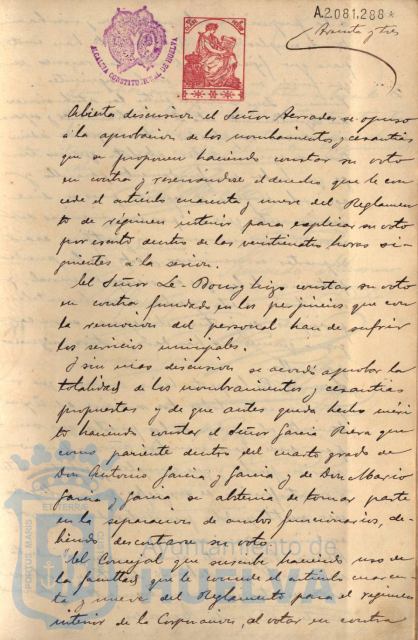 A.2081.288*
Treinta y tres
ALCALDIA CONSTITUCIONAL DE HUELVA
Abierta discusion el Señor Terrades se opuso
á la aprobacion de los nombramientos y cesantias
que se proponen haciendo constar su voto
en contra y reservandose el derecho que le con
cede el articulo cuarenta y nueve del Reglamen
to de régimen interior para esplicar su voto
por escrito dentro de las veinticuatro horas si-
guientes á la sesion.
El Señor Le-Bourg hizo constar su voto
en contra fundado en los perjuicios que con
la remocion del personal han de sufrir
los servicios municipales.
Y sin mas discusion se acordó aprobar la
totalidad de los nombramientos y cesantias
propuestas y de que antes queda hecho méri
to haciendo constar el Señor Garcia Riera que
como pariente dentro del cuarto grado de
Don Antonio Garcia y Garcia y de Don Mario
Garcia y Garcia se abstenia de tomar parte
en la separacion de ambos funcionarios, de-
biendo descontarse su voto.
El Concejal que suscribe haciendo uso de
la facultad que le concede el articulo cuaren
ta y nueve del Reglamento para el régimen
interior de la Corporacion, al votar en contra
PORTUS MARIS ET TERRAE
Ayuntamiento de
HUELVA